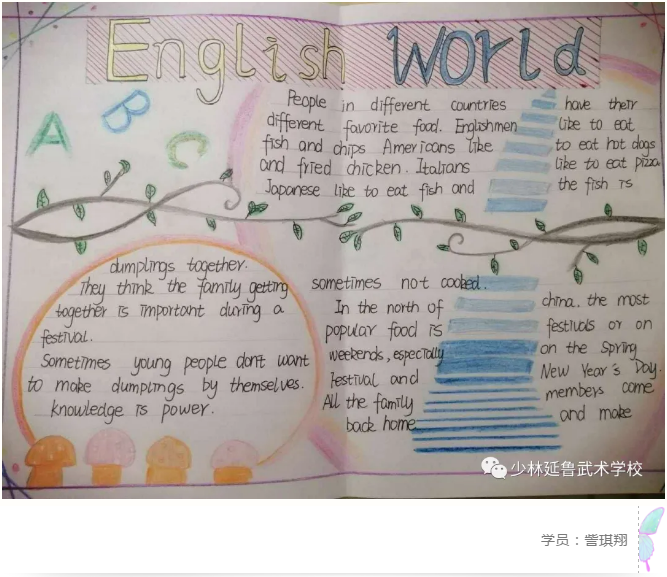 English World
A
B
C
People in different countries have their
different favorite food. Englishmen like to eat
fish and chips Americans like to eat hot dogs
and fried chicken. Italians like to eat pizza
Japanese like to eat fish and the fish is
sometimes not cooked.
In the north of china. the most
popular food is festivals or on
weekends, especially on the spring
Festival and New Year's Day.
All the family members come
back home and make
dumplings together.
They think the family getting
together is important during a
festival.
Sometimes young people dont want
to make dumplings by themselves.
knowledge is power.
少林延鲁武术学校
学员：訾琪翔